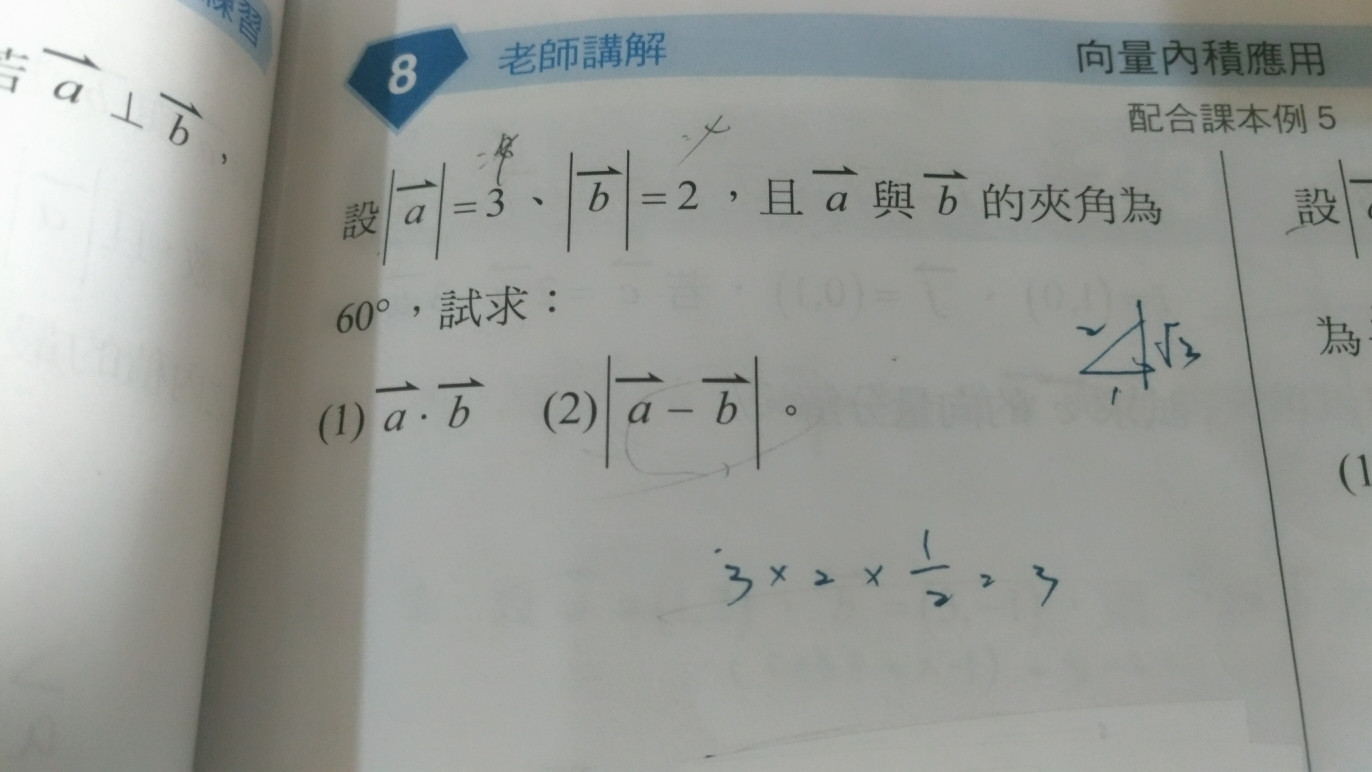 練習
若 a ⊥ b ,
8 老師講解 向量內積應用
配合課本例 5
設|a| = 3、|b| = 2,且 a 與 b 的夾角為
60°,試求:
(1) a · b (2)|a − b|。
2 √3
1
3 × 2 × 1/2 = 3
設
為
(1